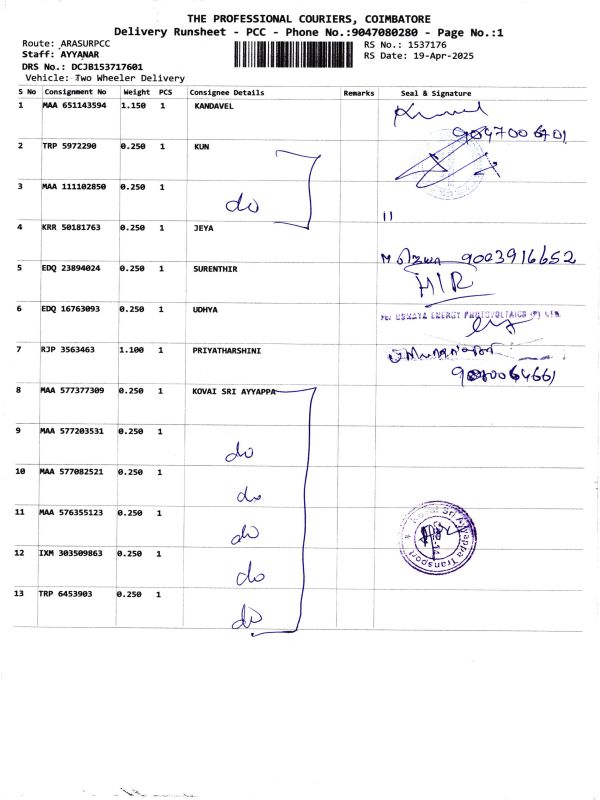 THE PROFESSIONAL COURIERS, COIMBATORE
Delivery Runsheet - PCC - Phone No.:9047080280 - Page No.:1
Route: ARASURPCC RS No.: 1537176
Staff: AYYANAR RS Date: 19-Apr-2025
DRS No.: DCJB153717601
Vehicle: Two Wheeler Delivery
S No Consignment No Weight PCS Consignee Details Remarks Seal & Signature
1 MAA 651143594 1.150 1 KANDAVEL
2 TRP 5972290 0.250 1 KUN
3 MAA 111102850 0.250 1 do 11
4 KRR 50181763 0.250 1 JEYA
9003916652
5 EDQ 23894024 0.250 1 SURENTHIR H/R
6 EDQ 16763093 0.250 1 UDHYA
ENERGY PHOTOVOLTAICS (P) LTD.
7 RJP 3563463 1.100 1 PRIYATHARSHINI
8 MAA 577377309 0.250 1 KOVAI SRI AYYAPPA
9 MAA 577203531 0.250 1 do
10 MAA 577082521 0.250 1 do
11 MAA 576355123 0.250 1 do
12 IXM 303509863 0.250 1 do
13 TRP 6453903 0.250 1 do
Kovai Sri Ayyappa Transport